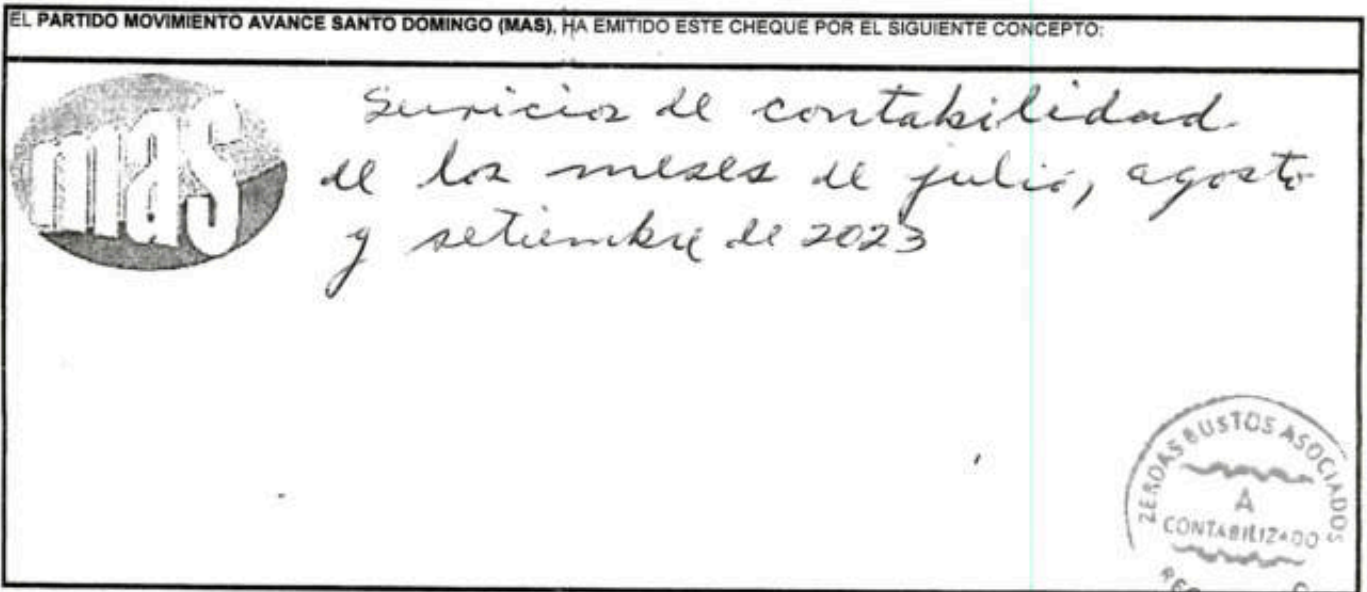 EL PARTIDO MOVIMIENTO AVANCE SANTO DOMINGO (MAS), HA EMITIDO ESTE CHEQUE POR EL SIGUIENTE CONCEPTO:
mas
Servicios de contabilidad
de los meses de julio, agosto
y setiembre de 2023
ZERDAS BUSTOS ASOCIADOS
A
CONTABILIZADO